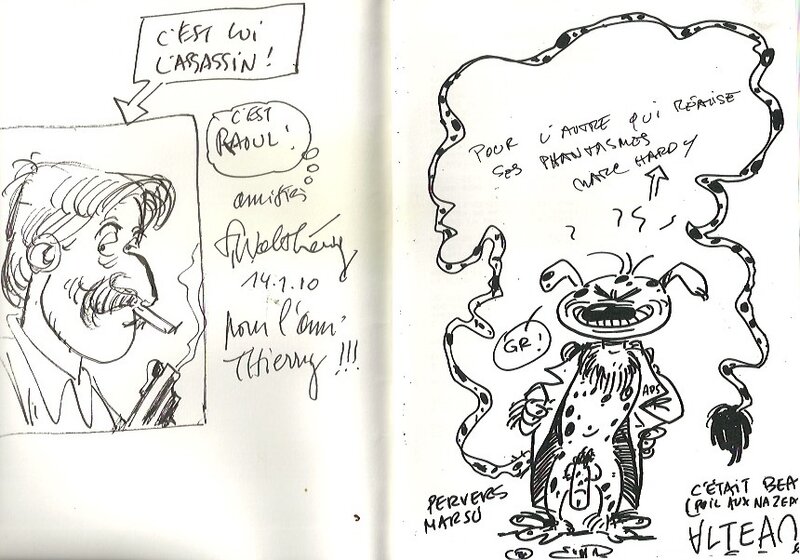 C'EST LUI
L'ASSASSIN !
C'EST
RAOUL !
amitiés
Walthéry
14.1.10
pour l'ami
Thierry !!!
POUR L'AUTRE QUI RÉALISE
SES PHANTASMES
MARC HARDY
? ?
GR !
PERVERS
MARSU
C'ÉTAIT BEA
(POIL AUX NAZEA
ALTEAU